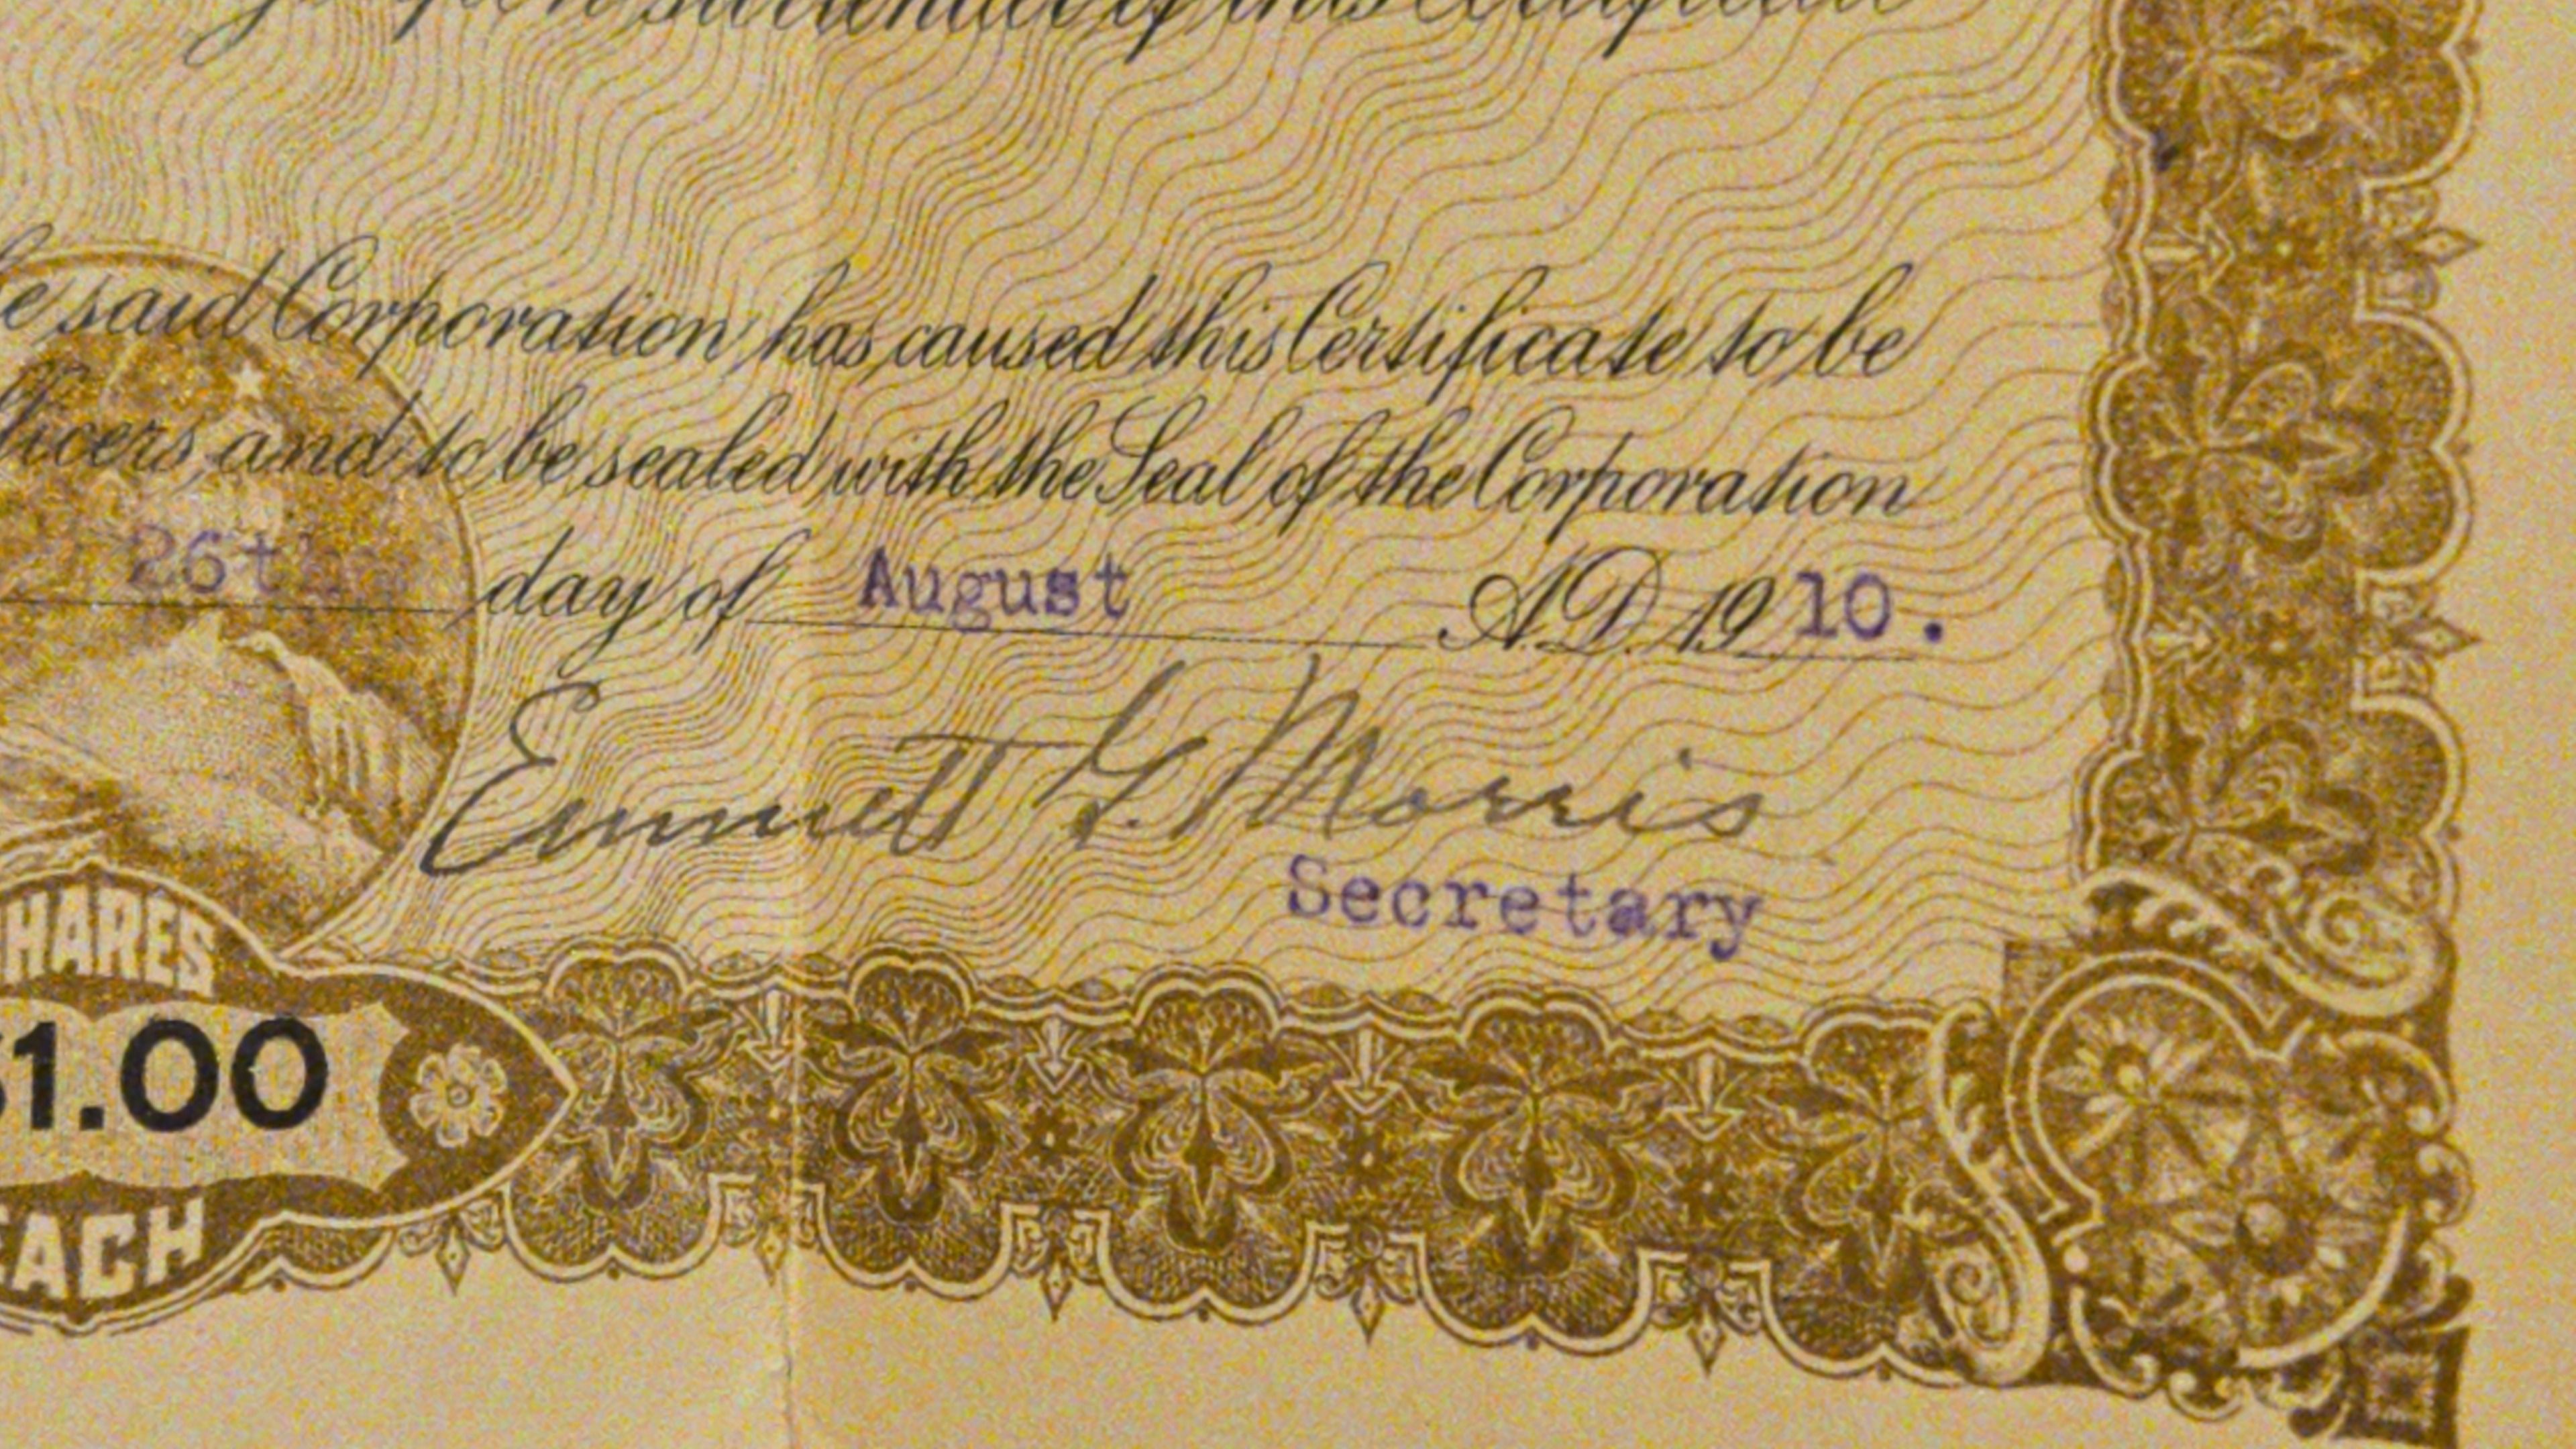 surrender of this Certificate
said Corporation has caused this Certificate to be
and to be sealed with the Seal of the Corporation
26th day of August A.D. 1910.
Emmett G. Morris
Secretary
HARES
$1.00
EACH